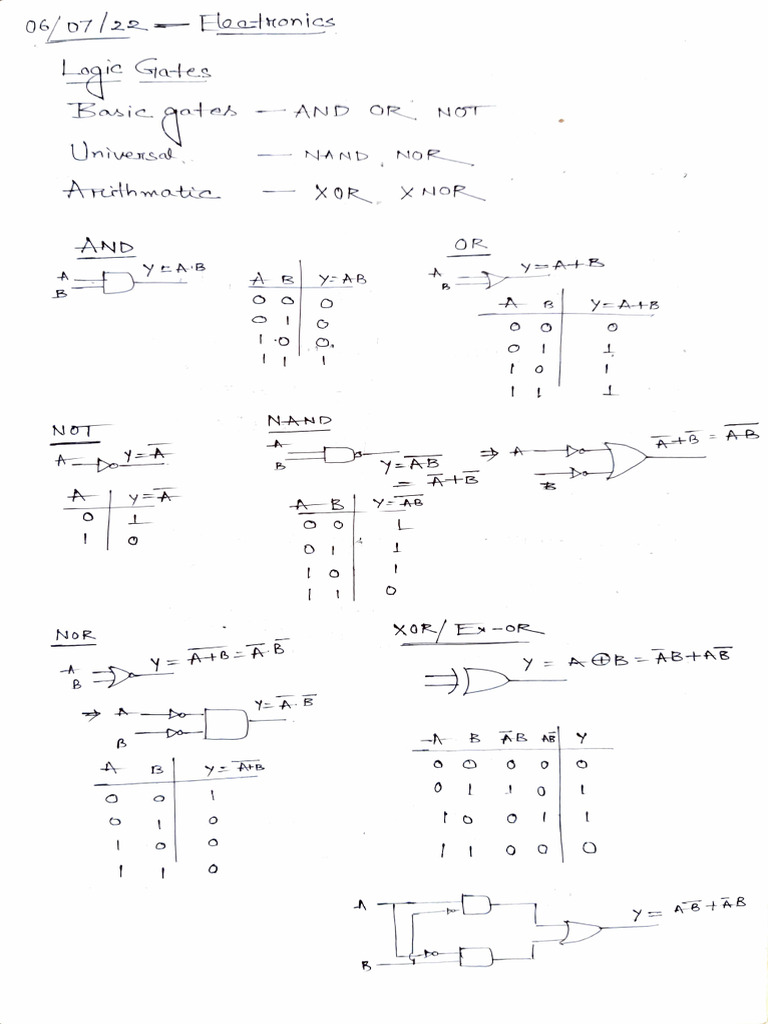 06/07/22 — Electronics
Logic Gates
Basic gates — AND OR, NOT
Universal — NAND, NOR
Arithmatic — XOR, XNOR
AND
A
B
Y = A·B
A B Y=AB
0 0 0
0 1 0
1 0 0
1 1 1
OR
A
B
Y = A+B
A B Y=A+B
0 0 0
0 1 1
1 0 1
1 1 1
NOT
A Y=A̅
A Y=A̅
0 1
1 0
NAND
A
B
Y = A̅B̅
= A̅+B̅
⇒ A
B
A̅+B̅ = A̅B̅
A B Y=A̅B̅
0 0 1
0 1 1
1 0 1
1 1 0
NOR
A
B
Y = A̅+̅B̅ = A̅·B̅
⇒ A
B
Y = A̅·B̅
A B Y=A̅+̅B̅
0 0 1
0 1 0
1 0 0
1 1 0
XOR/Ex-OR
Y = A⊕B = A̅B+AB̅
A B A̅B AB̅ Y
0 0 0 0 0
0 1 1 0 1
1 0 0 1 1
1 1 0 0 0
A
B
Y = AB̅+A̅B